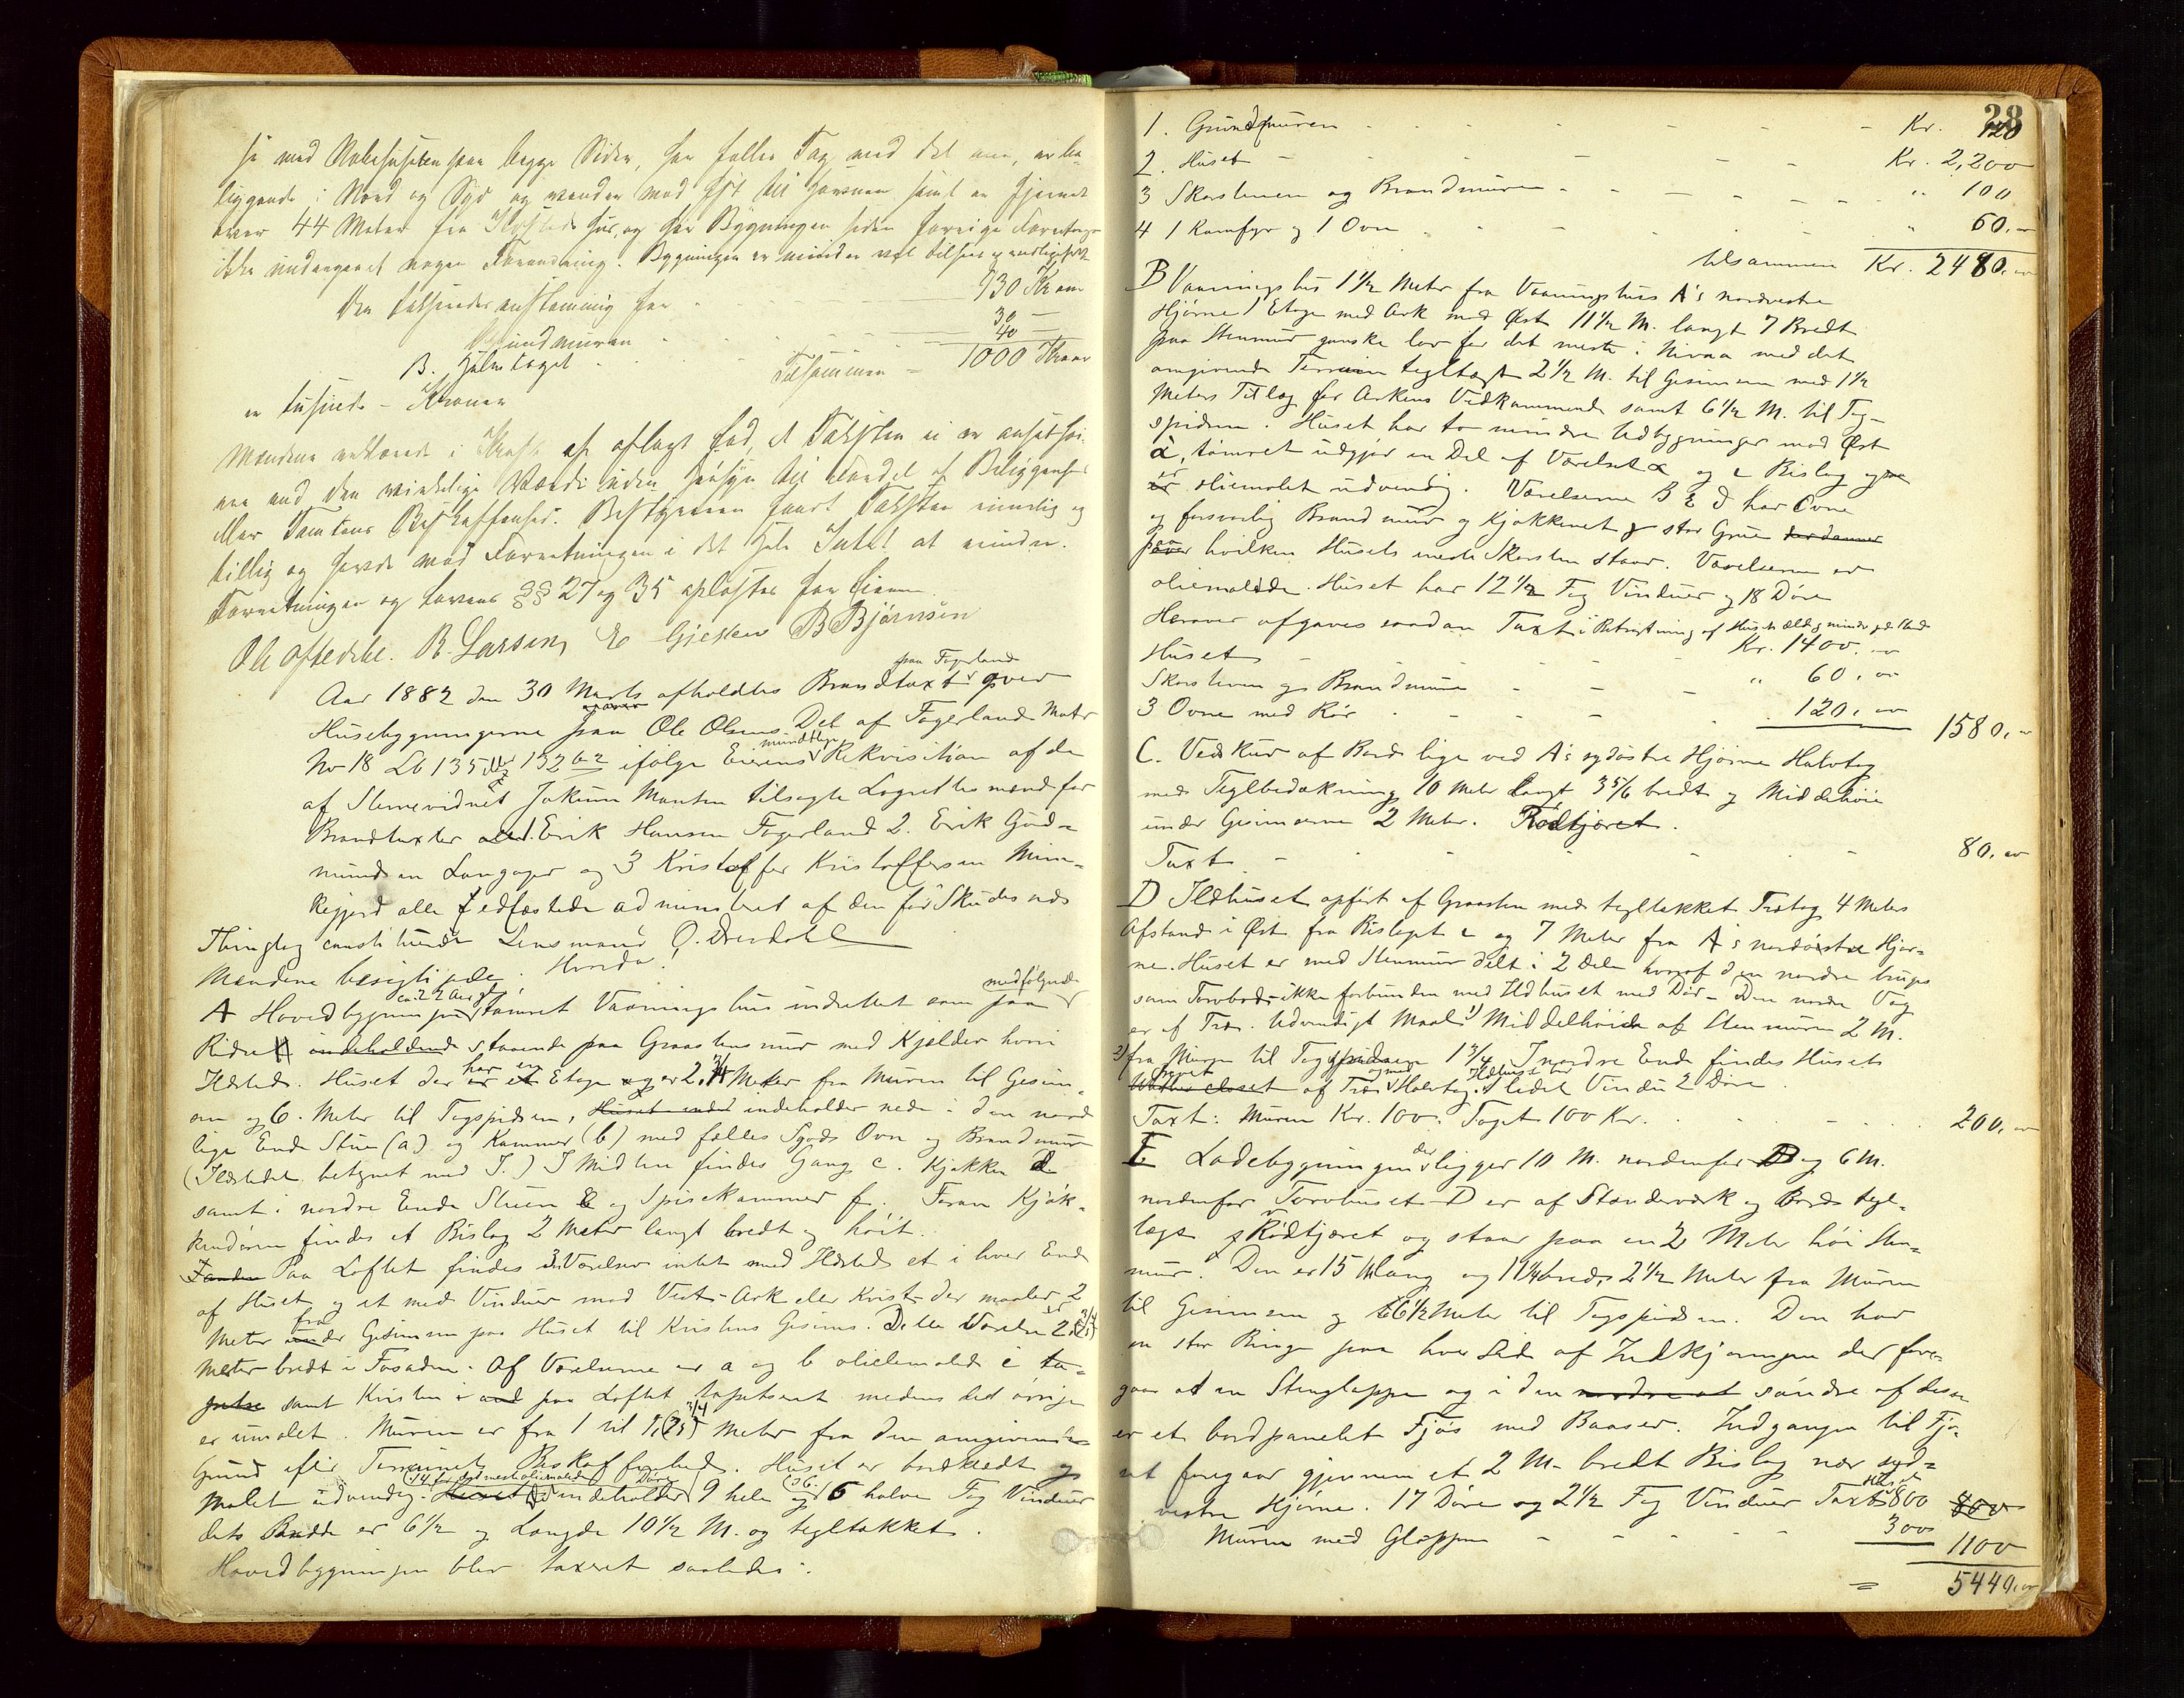 så med Nabohusene paa begge Sider, har fælles Tag med det ene, er be-
liggende i Nord og Syd og vender mod Øst til Havnen samt er fjernet
over 44 Meter fra Ildsteds hus, og har Bygningen siden forrige Forretning
ikke undergaaet nogen Forandring. Bygningen er mindre vel tilseet og vedligeholdt
Den taxeredes anstændig for 930 Kroner
Grundmuren 30 —
B. Halvtaget 40 —
Tilsammen — 1000 Kroner
er tusinde — Kroner
Mændene erklærede i Kraft af aflagt Ed, at Taksten ei er ansat høi-
ere end den virkelige Værdi uden Hensyn til Fordel af Beliggenhed
eller Tomtens Beskaffenhed. Bestyreren fandt Taksten rimelig og
billig og havde mod Forretningen i det Hele Intet at erindre.
Forretningen og Lovens §§ 27 og 35 oplæstes for Eieren
Ole Oftedahl. R. Larsen, E Gjesten B Bjørnsen
Aar 1882 den 30 Marts afholdtes Brandtaxt paa Fagerland over
Husebygningerne paa Ole Olsens Del af Fagerland Matr
No 18 Lb 135 152 b2 ifølge Eierens mundtlige Rekvisition af de
af Stevnevidnet Jokum Monsen tilsagte Lagrettes mænd for
Brandtaxter 1. Erik Hansen Fagerland 2. Erik Gud-
mundsen Langager og 3 Kristoffer Kristoffersen Mun-
kejord alle Edfæstede administreret af den for Skudenes
Thinglag constituerede Lensmand O. Dresdahl
Mændene besigtigede: Hvorda!
A Hovedbygningen ca. 22 Aar gl. tømret Vaaningshus indrettet som paa medfølgende
Rids A indeholdende staaende paa Graastensmur med Kjælder hvori
Ildsted. Huset der har en er et Etage og er 2.3/4 Meter fra Muren til Gesim-
sen og 6. Meter til Tagspidsen, Huset indeholder nede i den nord-
lige Ende Stue (a) og Kammer (b) med fælles Sgods Ovn og Brandmur
(Ildstedet betegnet med I.) I Midten findes Gang c. Kjøkken d
samt i nordre Ende Stuen E og Spisekammer f. Foran Kjøk-
kendøren findes et Bislag 2 Meter langt bredt og høit.
Paa Loftet findes 3 Værelser intet med Ildsted et i hver Ende
af Huset og et med Vinduer mod Vest - Ark eller Kvist der maaler 2
Meter fra Gesimsen paa Huset til Kvistens Gesims. Dette Værelse er 2 3/4
Meter bredt i Fasaden. Af Værelserne er a og b oliemalede c ta-
petse samt Kvisten i paa Loftet tapetseret medens det øvrige
er umalet. Muren er fra 1 til 1 3/4 Meter fra den omgivende
Grund efter Terrainets Beskaffenhed. Huset er bordklædt og
malet udvendig. Huset indeholder (14 for det meste oliemalede Døre) 9 hele og (16) 6 halve Fag Vinduer
dets Bredde er 6½ og Længde 10½ M. og tegltækket.
Hovedbygningen blev taxeret saaledes:
28
1. Grundmuren - - - Kr. 120
2. Huset - - - Kr. 2,200
3 Skorstenen og Brandmuren - - - " 100
4 1 Komfyr og 1 Ovn - - - " 60.
tilsammen Kr. 2480.
B Vaaningshus 1½ Meter fra Vaaningshus A's nordvestre
Hjørne 1 Etage med Ark mod Øst 11½ M. langt 7 Bredt
paa Stenmur ganske lav for det meste i Nivaa med det
omgivende Terrain tegltægt 2½ M. til Gesimsen med 1½
Meters Tillæg for Arkens Vedkommende samt 6½ M. til Tag-
spidsen. Huset har to mindre Udbygninger mod Øst
α, tømret udgjør en Del af Værelset α og ε Bislag og
er oliemalet udvendig. Værelserne B & δ har Ovne
og forsvarlig Brandmur og Kjøkkenet γ stor Grue der danner
paa over hvilken Husets meste Skorsten staar. Værelserne er
oliemalede. Huset har 12½ Fag Vinduer og 18 Døre
Herover afgaves saadan Taxt i Betragtning af Husets Ælde og mindre gode Stand
Huset - - - Kr. 1400.
Skorstenen og Brandmuren - - - " 60.
3 Ovne med Rør - - - 120. 1580.
C. Vedskur af Bord lige ved A's sydøstre Hjørne Halvtag
med Teglbedækning 10 Meter langt 3 5/6 bredt og Middelhøie
under Gesimserne 2 Meter. Rødtjæret.
Taxt - - - 80.
D Ildhuset opført af Graasten med tegltækket Trætag 4 Meters
Afstand i Øst fra Bislaget ε og 7 Meter fra A's nordøstre Hjør-
ne. Huset er med Stenmur delt i 2 Dele hvoraf den nordre bruges
som Torvbod ikke forbunden med Ildhuset med Dør - Den nordre Væg
er af Træ. Udvendigt Maal 1) Middelhøide af Stenmuren 2 M.
2) fra Muren til Tagspidsen 1 3/4. I nordre Ende findes Husets
af Træ og med Halvtag. Ildhuset har 1 lidet Vindu 2 Døre
Taxt: Muren Kr. 100. Taget 100 Kr. - - - 200.
E Ladebygningen der ligger 10 M. nordenfor B og 6 M.
nordenfor Torvhuset D er af Stænderværk og Bord tegl-
lagt og Rødtjæret og staar paa en 2 Meter høi Sten-
mur. Den er 15 M lang og 11¼ bred, 2½ Meter fra Muren
til Gesimsen og 6½ Meter til Tagspidsen. Den har
en stor Binge paa hver Side af Indkjørngen der fore-
gaar ad en Stenglappe og i den nordre at søndre af disse
er et bordpanelet Fjøs med Baaser. Indgangen til Fjø-
set foregaar gjennem et 2 M. bredt Bislag nær syd-
vestre Hjørne. 17 Døre og 2½ Fag Vinduer Taxt Huset 800 800
Muren med Glappen - - - 300 1100
= 5440.